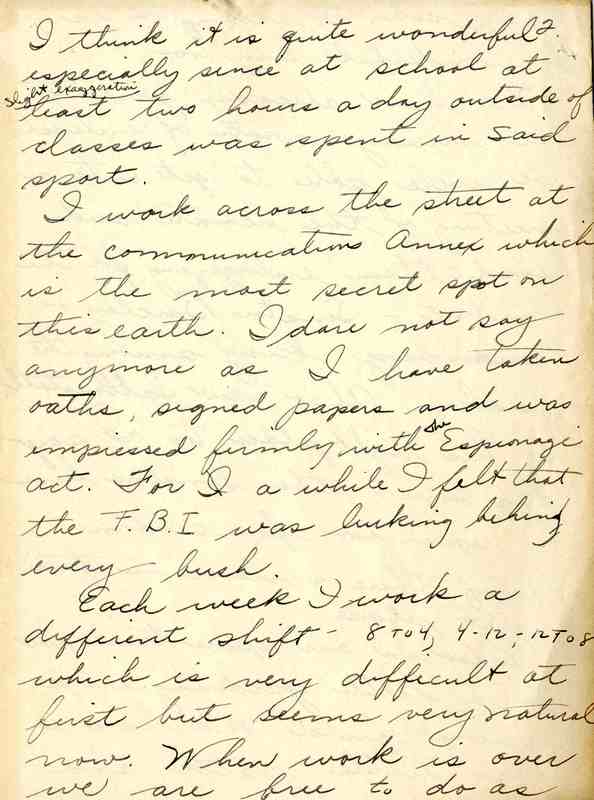 I think it is quite wonderful 2.
especially since at school at
slight exaggeration
least two hours a day outside of
classes was spent in said
sport.
I work across the street at
the communications Annex which
is the most secret spot on
this earth. I dare not say
anymore as I have taken
oaths, signed papers and was
impressed firmly with the Espionage
act. For I a while I felt that
the F.B.I was lurking behind
every bush.
Each week I work a
different shift - 8 TO 4, 4-12, - 12 TO 8
which is very difficult at
first but seems very natural
now. When work is over
we are free to do as